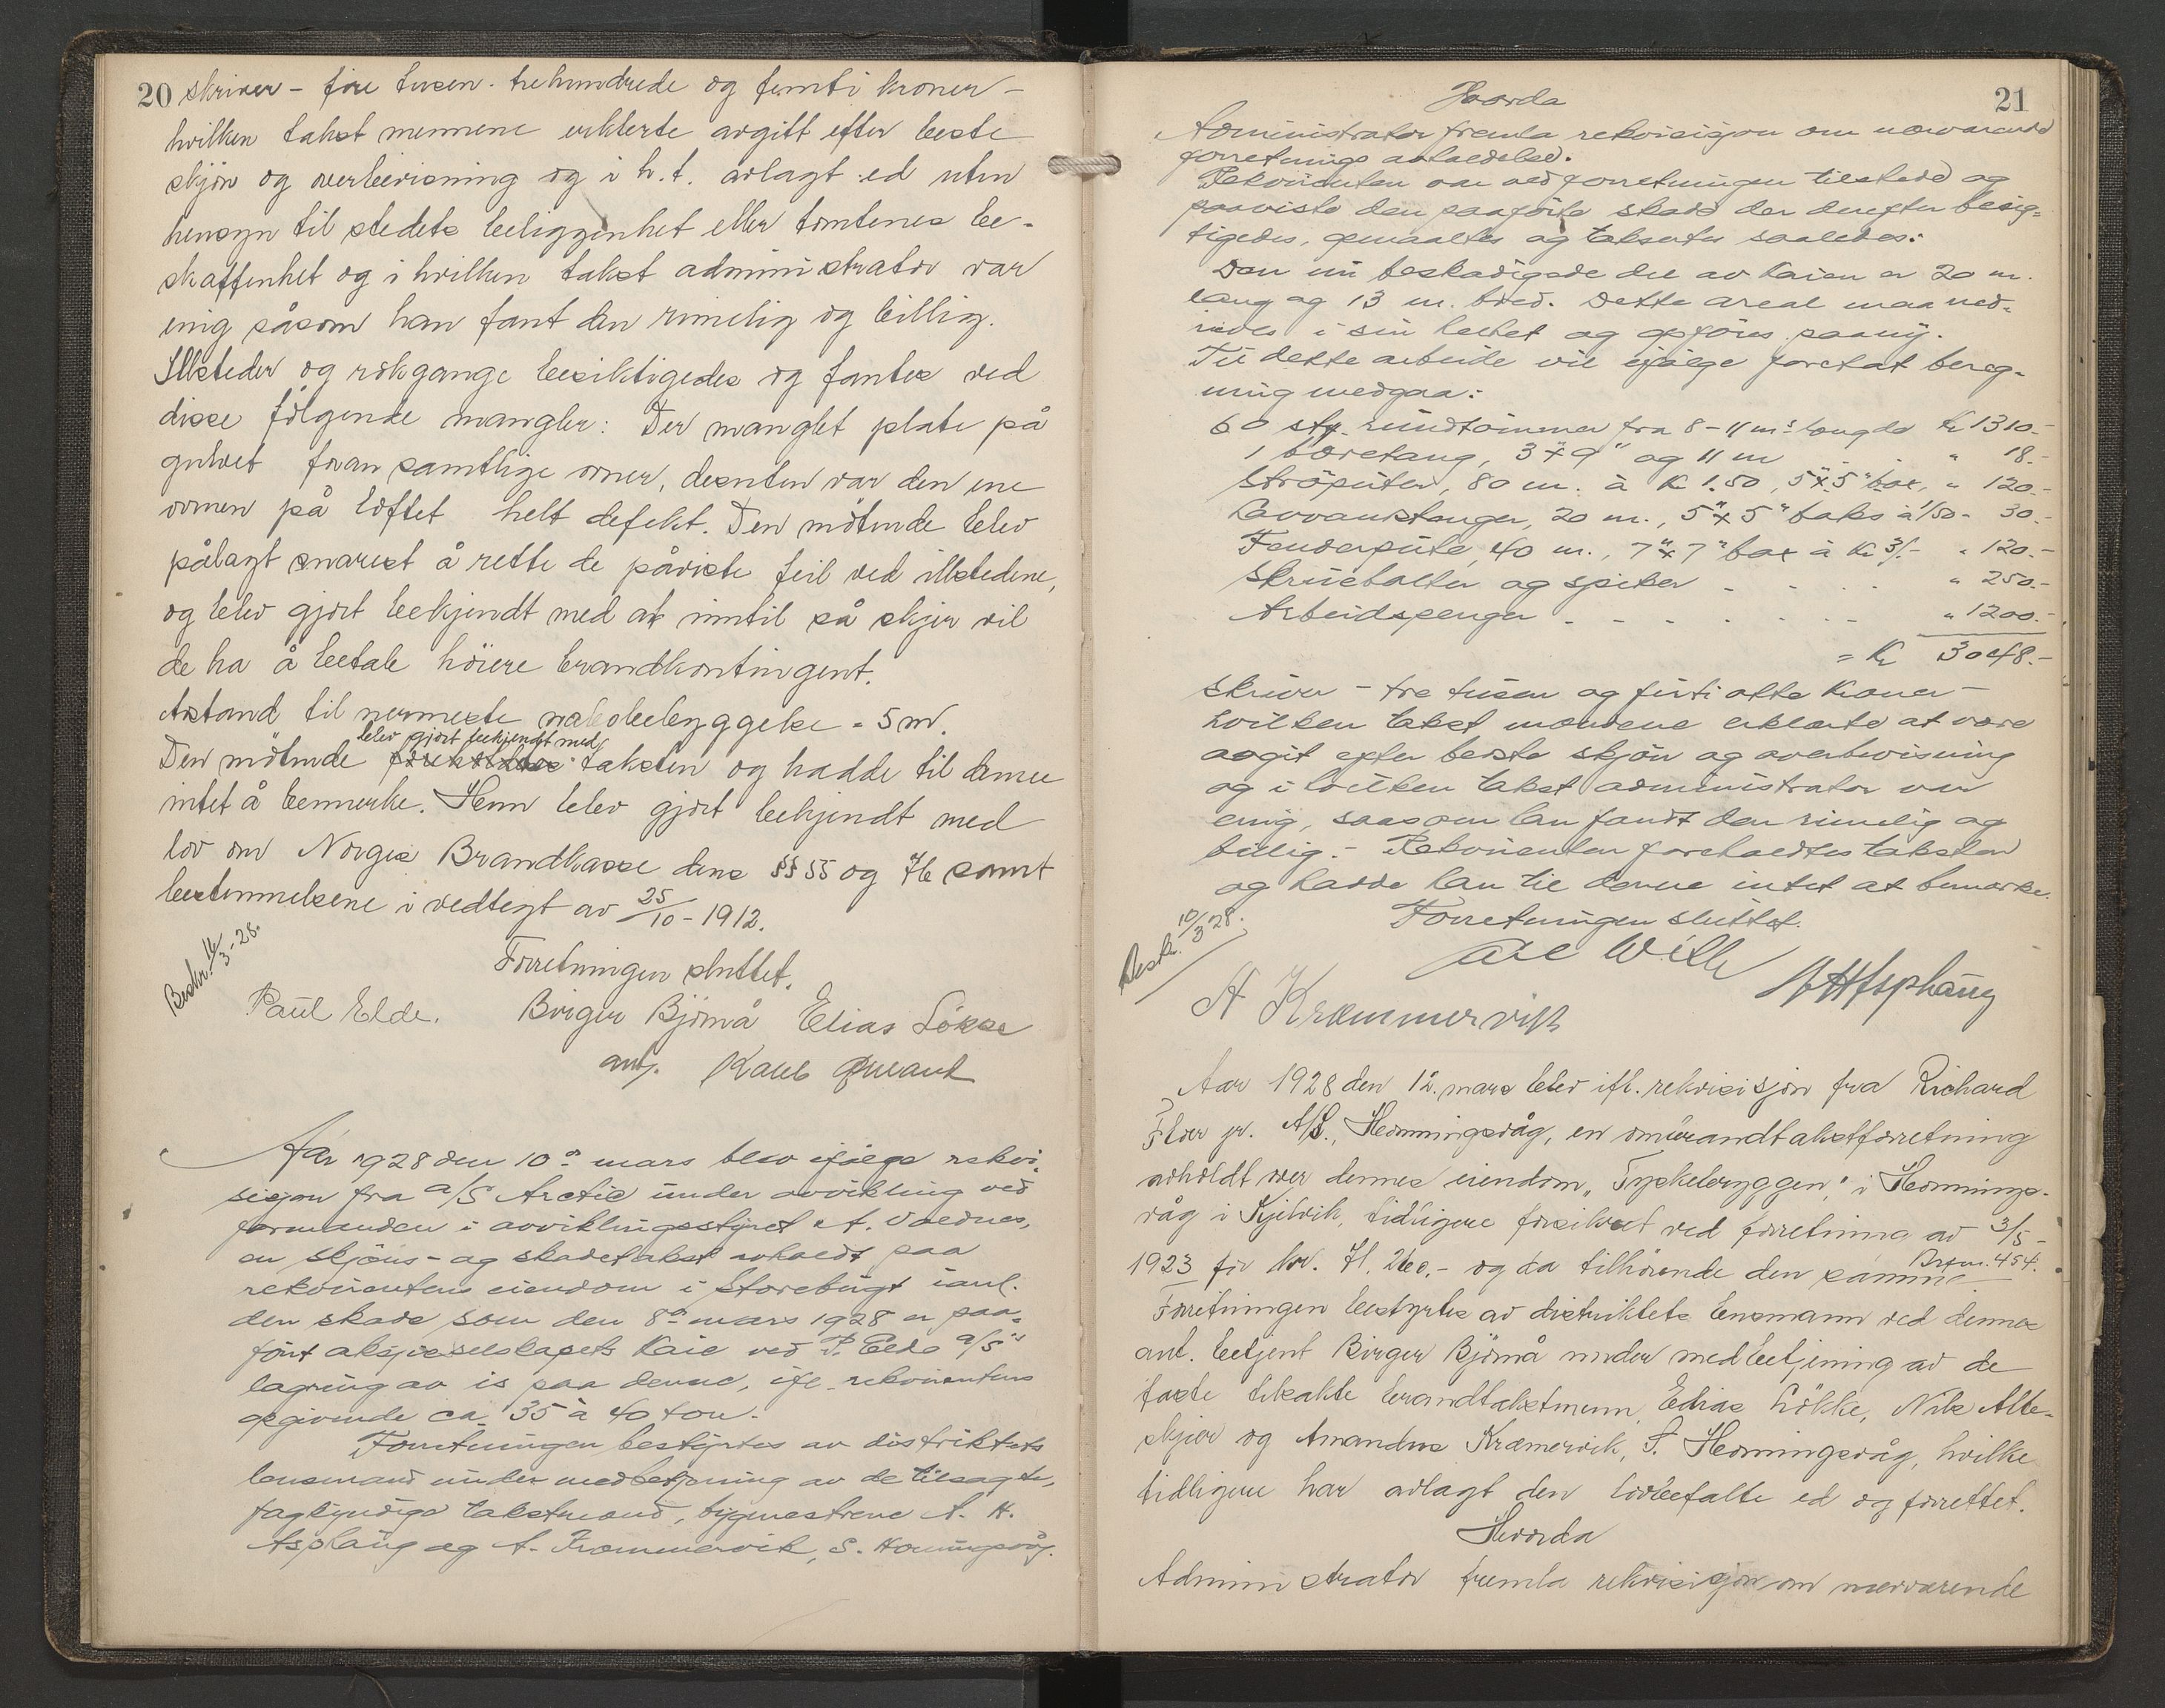 20 skriver - fire tusen trehundrede og femti kroner -
hvilken takst mennene erklerte avgitt efter beste
skjön og overbevisning og i h.t. avlagt ed uten
hensyn til stedets beliggenhet eller tomtenes be-
skaffenhet og i hvilken takst administrator var
enig såsom han fant den rimelig og billig.
Ildsteder og rökgange besiktigedes og fantes ved
disse fölgende mangler: Der manglet plate på
gulvet foran samtlige ovner, desuten var den ene
ovnen på loftet helt defekt. Den mötende blev
pålagt snarest å rette de påviste feil ved ildstedene,
og blev gjort bekjendt med at inntil så skjer vil
de ha å betale höiere brandkontingent.
Avstand til nermeste nabobebyggelse = 5 m.
blev gjort bekjendt med
Den mötende foreholdtes taksten og hadde til denne
intet å bemerke. Henn blev gjort bekjendt med
lov om Norges Brandkasse dens §§ 55 og 76 samt
bestemmelsene i vedtegt av 25/10 - 1912.
Beskr. 16/3 - 28.
Forretningen sluttet.
Paul Elde. Birger Björnå Elias Lökke
aut.
Aar 1928 den 10de mars blev ifölge rekvi-
sisjon fra a/S Arctic under avvikling ved
formanden i avviklingsstyret A. Voldnes,
en skjöns- og skadetakst avholdt paa
rekvirentens eiendom i Storebugt ianl.
den skade som den 8de mars 1928 er paa-
fört aksjeselskapets Kaie ved P. Elde a/S's
lagring av is paa denne, ifl. rekvirentens
opgivende ca 35 à 40 ton.
Forretningen bestyrtes av distriktets
lensmand under medbetjening av de tilsagte,
fagkyndige takstmænd, bygmestrene A. H.
Asphaug og A. Kræmmervik, S. Honningsvåg.
21
Hvorda
Administrator fremla rekvisisjon om nærværende
forretnings avholdelse.
Rekvirenten var ved forretningen tilstede og
paaviste den paaförte skade der derefter besig-
tigedes, opmaaltes og taksertes saaledes:
Den nu beskadigede del av kaien er 20 m.
lang og 13 m. bred. Dette areal maa ned-
rives i sin helhet og opföres paany.
Til dette arbeide vil ifölge foretat bereg-
ning medgaa:
60 stk. rundtömmer fra 8-11 m's længde Kr 1310.-
1 bæretang, 3" x 9" og 11 m " 18.-
Ströputer, 80 m. à K 1.50, 5" x 5" box, " 120.-
Tenderpute, 40 m., 7" x 7" box à Kr 3/- " 120.-
Skruebolter og spiker - - - " 250.-
Arbeidspenger - - - - - - " 1200.-
= Kr 3048.-
skriver - tre tusen og firti otte kroner -
hvilken takst mændene erklærte at være
avgit efter beste skjön og overbevisning
og i hvilken takst administrator var
enig, saasom han fandt den rimelig og
billig. - Rekvirenten foreholdtes taksten
og hadde han til denne intet at bemærke.
Forretningen sluttet.
Beskr. 10/3 28.
A Kræmmervik
A H Asphaug
Aar 1928 den 12. mars blev ifl. rekvisisjon fra Richard
Flöer jr. A/S., Honningsvåg, en ombrandtakstforretning
avholdt over dennes eiendom "Tyskebryggen", i Honnings-
våg i Kjelvik, tidligere forsikret ved forretning av 3/5 -
1923 for kr. 71.260.- og da tilhörende den samme Brfm. 454.
Forretningen bestyrtes av distriktets lensmann ved dennes
aut. betjent Birger Björnå under medbetjening av de
faste tilsatte brandtakstmenn, Elias Lökke, Nils Alte-
skjær og Amandus Kræmervik, S. Honningsvåg, hvilke
tidligere har avlagt den lovbefalte ed og forrettet.
Hvorda
Administrator fremla rekvisisjon om nærværende